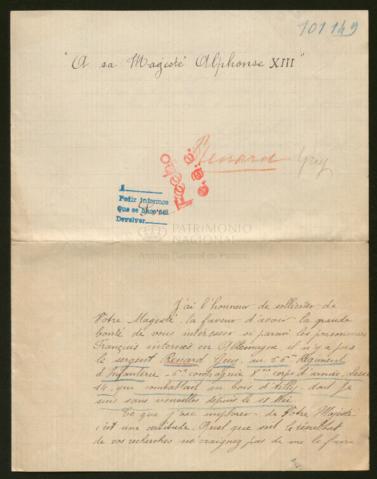 101149
"A sa Magesté Alphonse XIII"
Renard Guy
Pedir informes
Que se
Devolver
PATRIMONIO
NACIONAL
Archivo General de Palacio
J'ai l'honneur de solliciter de
Votre Magesté la faveur d'avoir la grande
bonté de vous interesser si parmi les prisonniers
Français internés en Allemagne il n'y a pas
le sergent Renard Guy, au 56me Régiment
d'Infanterie 8me corps d'armée,
14, qui combattait au bois d'Ailly dont je
suis sans nouvelles depuis le
Ce que j'ose implorer de Votre Majesté
c'est une certitude. Quel que soit le résultat
de vos recherches ne craignez pas de me le faire